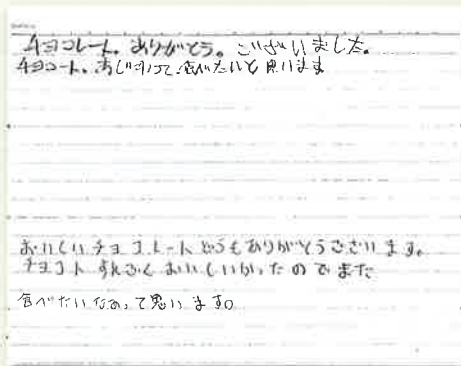 チョコレート。ありがとう。ございました。
チョコート、あじわって食べたいと思います
おいしいチョコレートどうもありがとうございます。
チョコト すんごくおいしいかったのでまた
食べたいなあって思います。